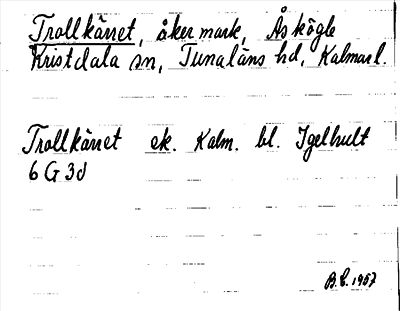 Trollkärret, åkermark, Åskögle
Kristdala sn, Tunaläns hd, Kalmar l.
Trollkärret ek. Kalm. bl. Igelhult
6 G 3d
B.L. 1967